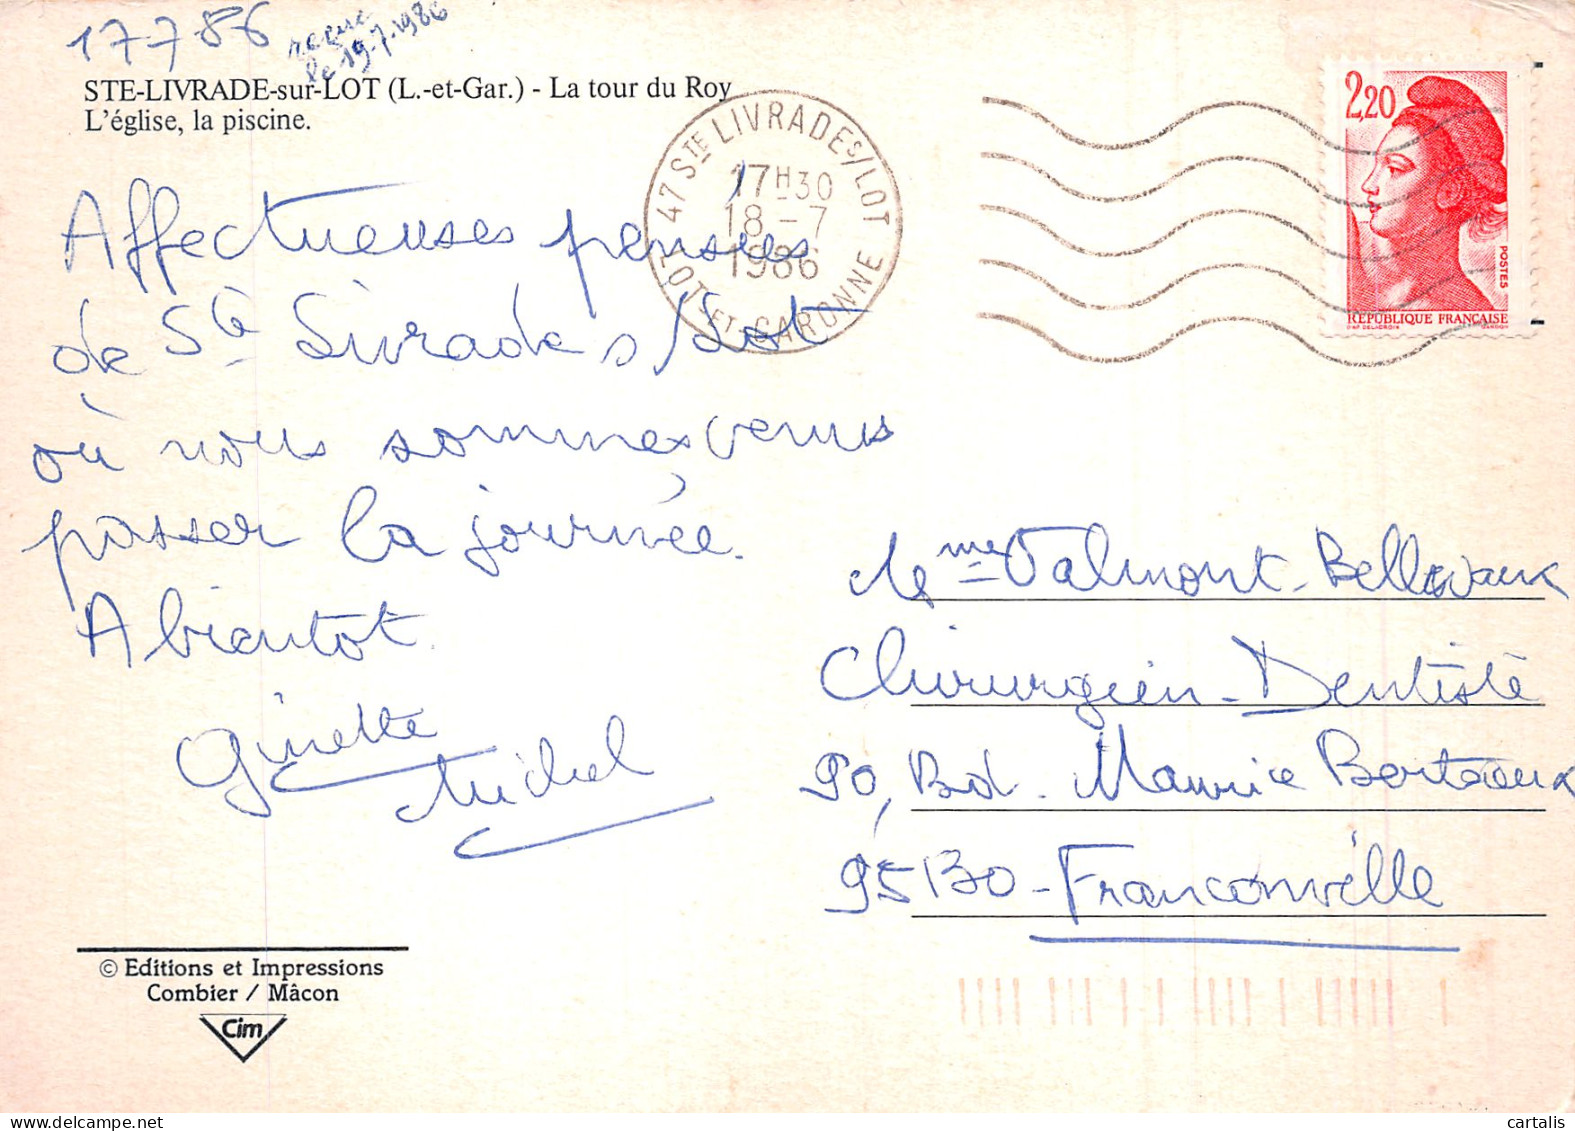 17 7 86
reçue
le 19.7.1986
STE-LIVRADE-sur-LOT (L.-et-Gar.) - La tour du Roy
L'église, la piscine.
47 STE LIVRADE S/LOT
17H30
18 - 7
1986
LOT-ET-GARONNE
2,20
POSTES
RÉPUBLIQUE FRANÇAISE
D'AP. DELACROIX GANDON
Affectueuses pensées
de Ste Livrade s/Lot
où nous sommes venus
passer la journée.
A bientot.
Ginette
Michel
Mme Valmont-Bellevaux
Chirurgien-Dentiste
90, Bd. Maurice Berteaux
95130 - Franconville
© Editions et Impressions
Combier / Mâcon
Cim
cartalis.com